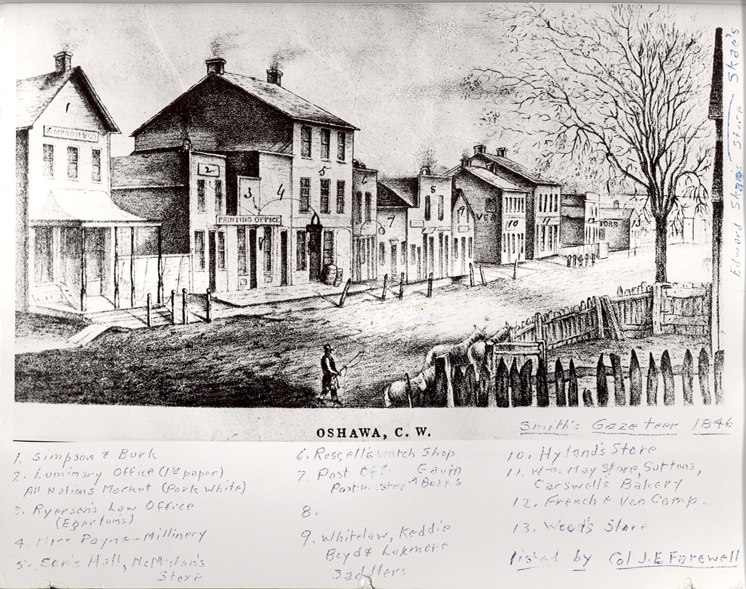 SIMPSON & CO
2
3
4
PRINTING OFFICE
5
6
7
8
9
10
11
OSHAWA, C. W.
Smith's Gazeteer 1846
1. Simpson & Burk
2. Luminary Office (1st paper)
All Nations Market (Pork White)
3. Ryerson's Law Office
(Egerton's)
4. Miss Payne - Millinery
5. Son's Hall,
Store
6. Rossell's Watch Shop
7. Post Off. Gavin
Postmaster Burns
8.
9. Whitelaw, Keddie
Boyd & Luxmore
Saddlers
10. Hyland's Store
11. Wm. May Store, Suttons,
Carswell's Bakery
12. French & Van Camp.
13. Wood's Store
listed by Col J. E. Farewell
Edward Skae Store Skae's